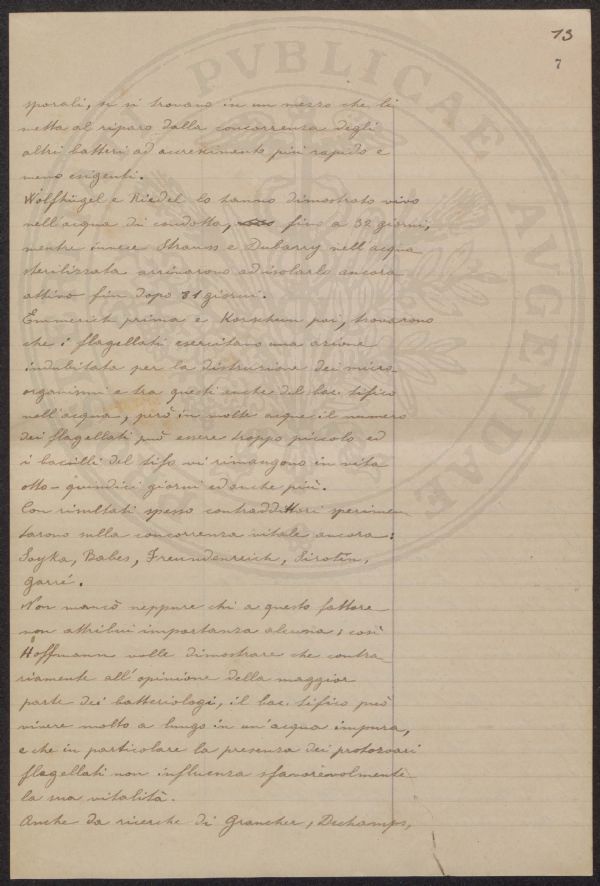 13
7
sporali, si si trovano in un mezzo che li
metta al riparo dalla concorrenza degli
altri batteri ad accrescimento più rapido e
meno esigenti.
Wolffhügel e Riedel lo hanno dimostrato vivo
nell'acqua di condotta, fino a 32 giorni,
mentre invece Strauss e Dubarry nell'acqua
sterilizzata arrivarono ad isolarlo ancora
attivo fin dopo 81 giorni.
Emmerich prima e Korschun poi, trovarono
che i flagellati esercitano una azione
indubitata per la distruzione dei micro-
organismi e tra questi anche del bac. tifico
nell'acqua, però in molte acque il numero
dei flagellati può essere troppo piccolo ed
i bacilli del tifo vi rimangono in vita
otto-quindici giorni ed anche più.
Con risultati spesso contraddittori sperimen
tarono sulla concorrenza vitale ancora:
Soyka, Babes, Freundenreich, Sirotin,
Garré.
Non mancò neppure chi a questo fattore
non attribuì importanza alcuna; così
Hoffmann volle dimostrare che contra
riamente all'opinione della maggior
parte dei batteriologi, il bac. tifico può
vivere molto a lungo in un'acqua impura,
e che in particolare la presenza dei protozoari
flagellati non influenza sfavorevolmente
la sua vitalità.
Anche da ricerche di Grancher, Dechamps,
PVBLICAE AVGENDAE